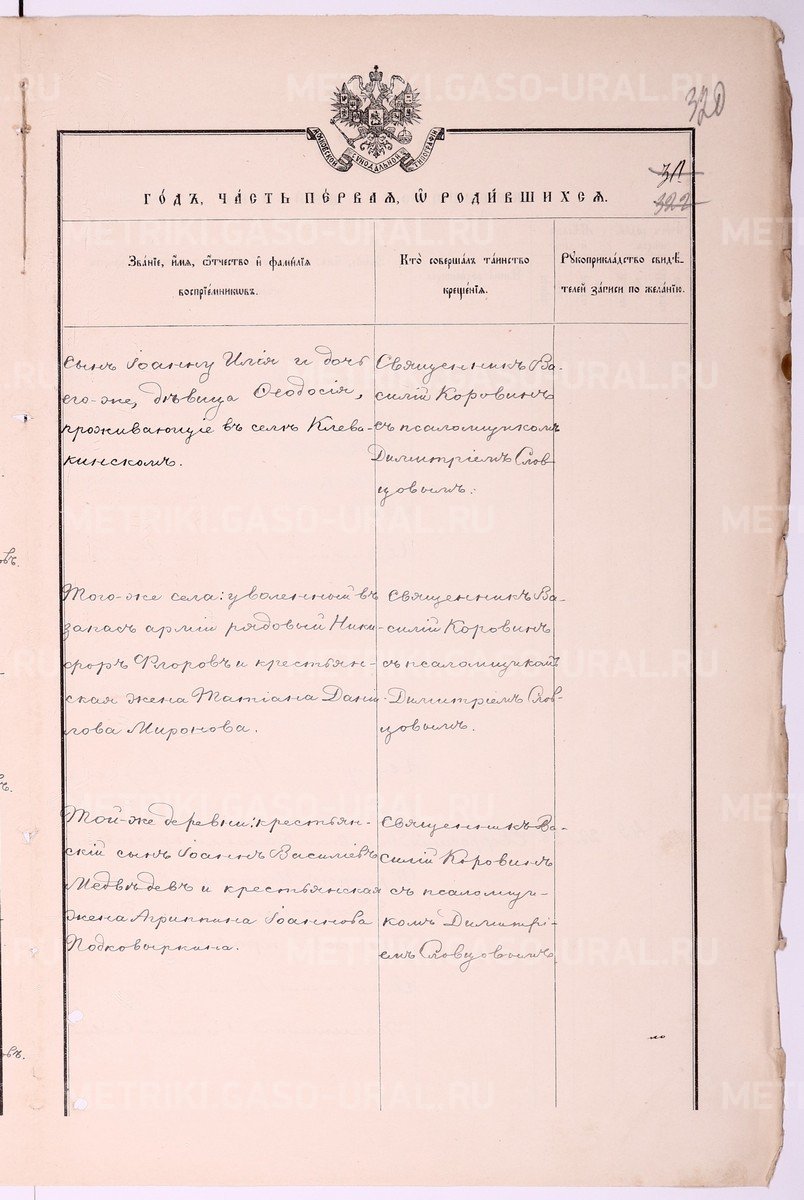 320
МОСКОВСКОЙ СѴНОДАЛЬНОЙ ТИПОГРАФІИ
322
ГО́ДЪ, ЧА́СТЬ ПЕ́РВАЯ, Ѡ҆ РОДИ́ВШИХСЯ.
Зва́нїе, и҆́мя, ѻ҆́тчество и҆ фами́лїя
воспрїе́мникѡвъ.
Кто̀ соверша́лъ та́инство
креще́нїя.
Рꙋкоприкла́дство свидѣ́-
телей за́писи по жела́нїю.
сынъ Іоанну Илія и дочь
его-же, дѣвица Ѳеодосія,
проживающіе въ селѣ Клева-
кинскомъ.
Священникъ Ва-
силій Коровинъ
съ псаломщикомъ
Димитріемъ Слов
цовымъ.
Того-же села: уволенный въ
запасъ арміи рядовый Ники-
форъ Флоровъ и крестьян-
ская жена Татіана Даніи-
лова Миронова.
Священникъ Ва-
силій Коровинъ
съ псаломщикомъ
Димитріемъ Слов-
цовымъ.
Той-же деревни: крестьян-
скій сынъ Іоаннъ Василіевъ
Медвѣдевъ и крестьянская
жена Агриппина Іоаннова
Подковыркина.
Священникъ Ва-
силій Коровинъ
съ псаломщи-
комъ Димитрі-
емъ Словцовымъ.
METRIKI.GASO-URAL.RU